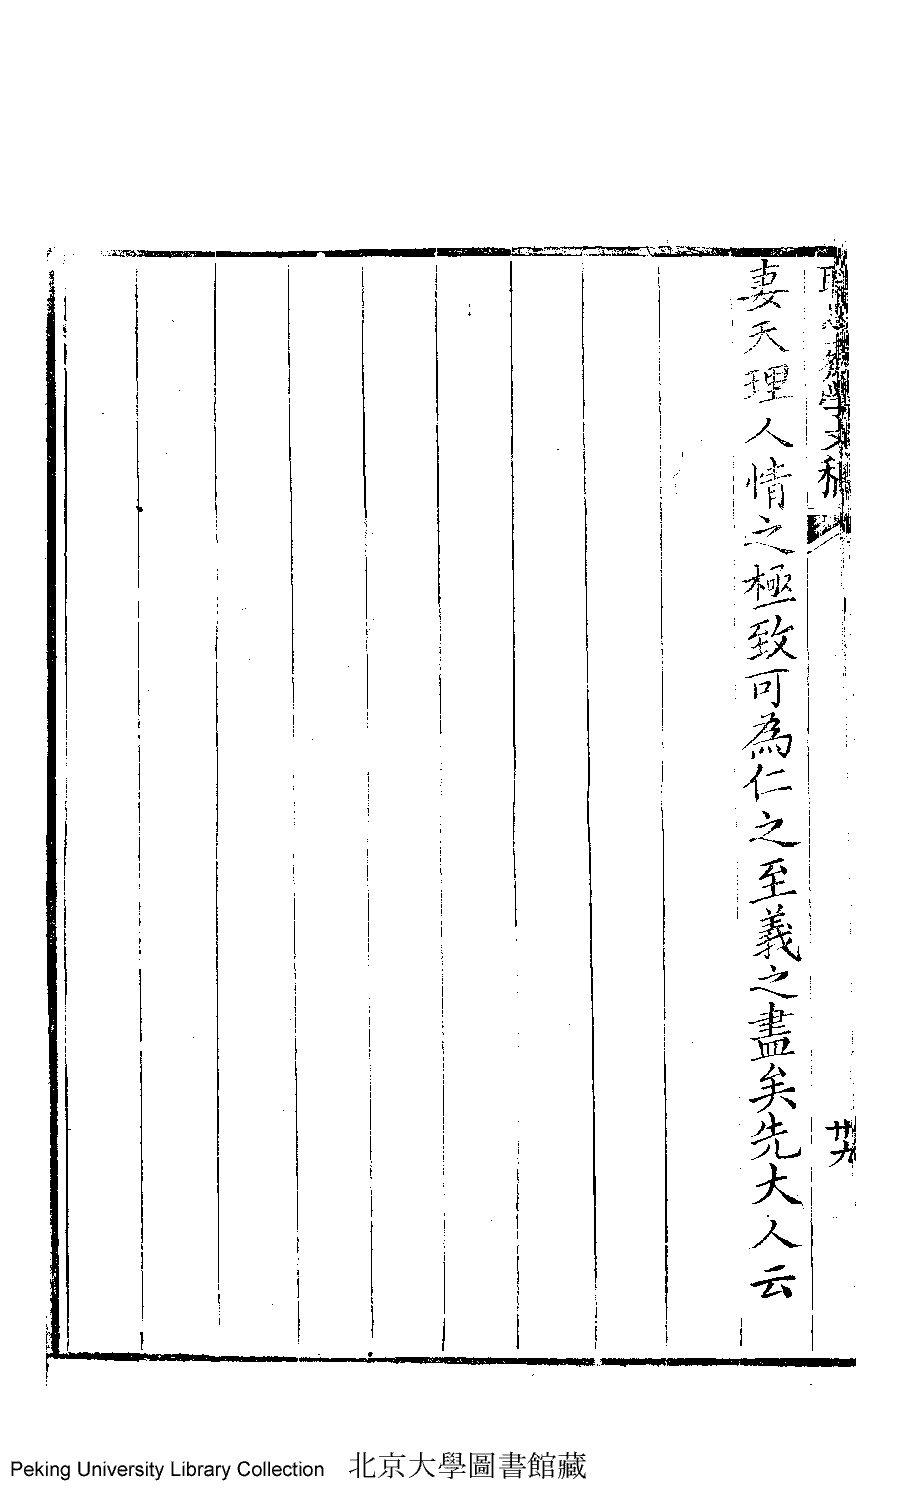 學文稿
廿九
妻天理人情之極致可為仁之至義之盡矣先大人云
Peking University Library Collection 北京大學圖書館藏